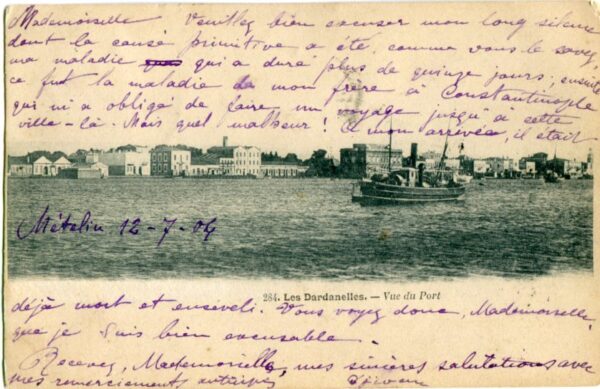 Mademoiselle Veuillez bien excuser mon long silence
dont la cause primitive a été, comme vous le savez,
ma maladie qui a duré plus de quinze jours; ensuite
ce fut la maladie de mon frère à Constantinople
qui m'a obligé de faire un voyage jusqu'à cette
ville-là. Mais quel malheur! À mon arrivée, il était
Métélin 12-7-04
284. Les Dardanelles. — Vue du Port
déjà mort et enseveli. Vous voyez donc, Mademoiselle,
que je suis bien excusable.
Recevez, Mademoiselle, mes sincères salutations avec
mes remerciements anticipés